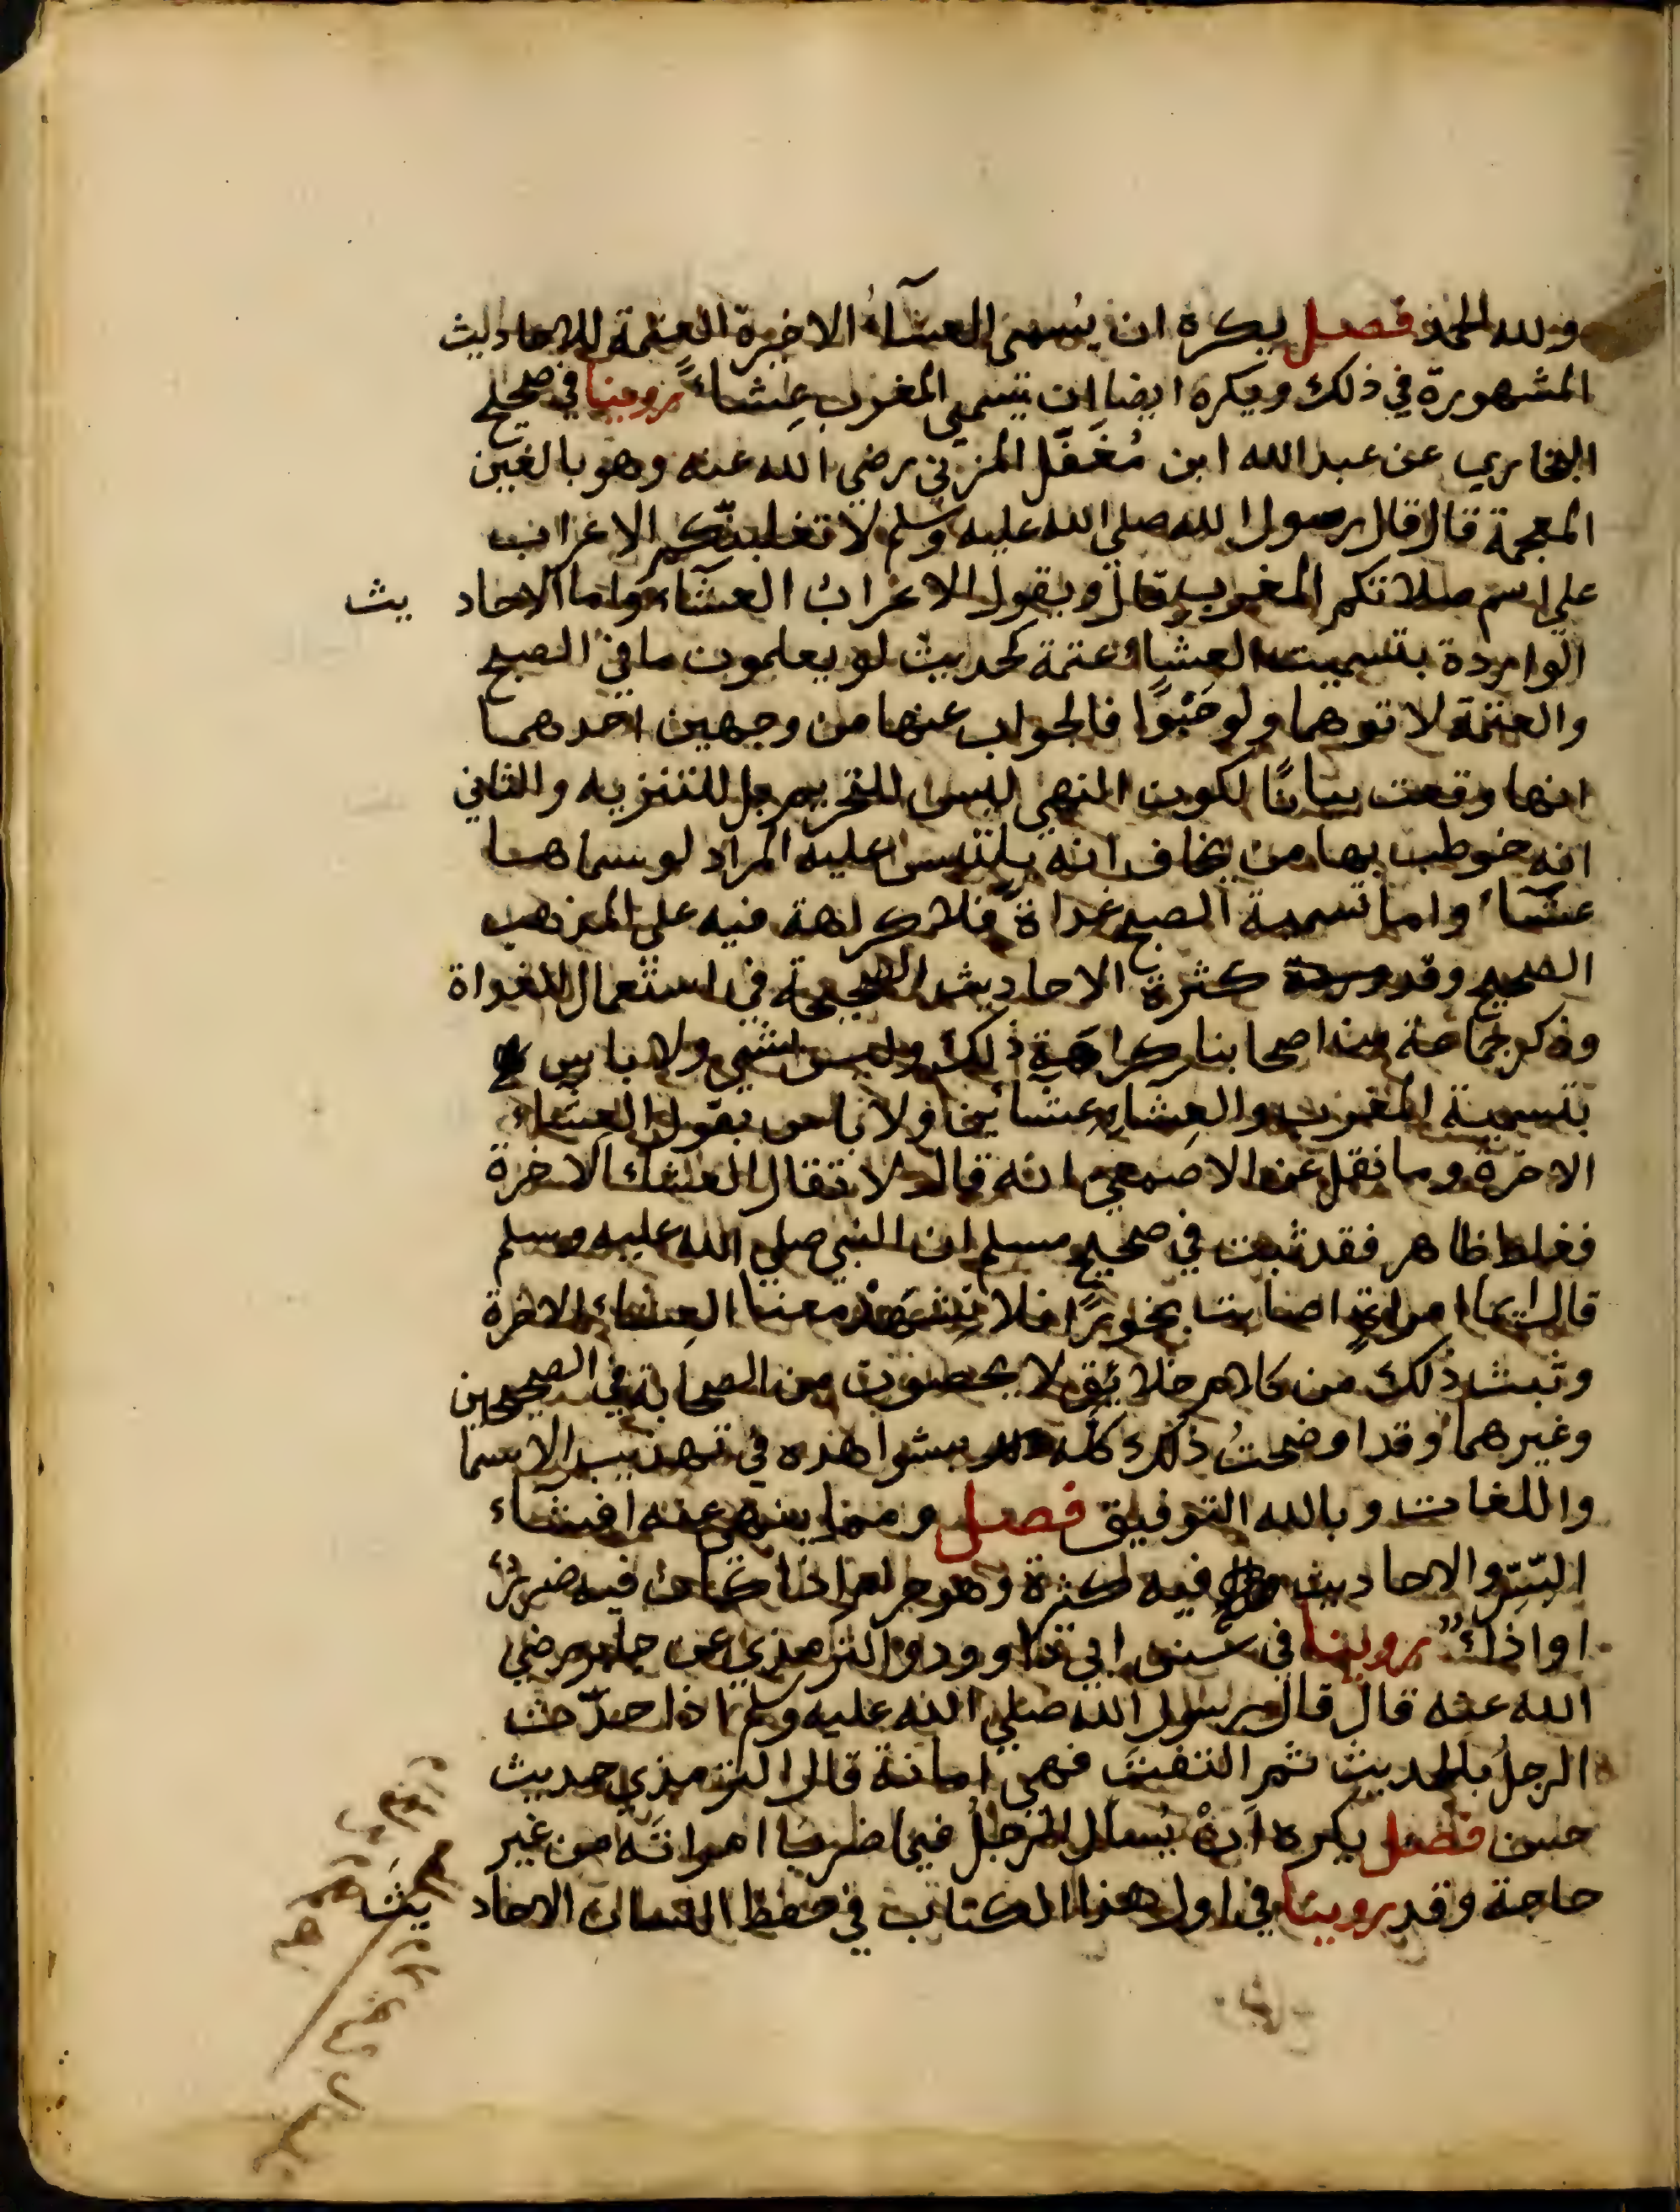 ولله الحمد فصل يكره ان يُسمى العشآءُ الاخرة العتمة للاحاديث
المشهورة في ذلك ويكره ايضا ان تسمى المغرب عِشاءً روينا في صحيح
البخاري عن عبد الله ابن مُغَفَّل المزني رضي الله عنه وهو بالغين
المعجمة قال قال رسول الله صلى الله عليه وسلم لا تغلبنّكم الاعراب
على اسم صلاتكم المغرب قال ويقول الاعرابُ العشآء واما الاحاديث
الواردة بتسميت العِشاء عتمة كحديث لو يعلمون ما في الصبح
والعتمة لاتوهما ولو حَبْوًا فالجواب عنها من وجهين احدهما
انها وقعت بيانًا لكون النهي ليس للتحريم بل للتنزيه والثاني
انه خوطب بها من يخاف انه يلتبس عليه المراد لو سماها
عشآء واما تسمية الصبح غداة فلا كراهة فيه على المذهب
الصحيح وقد كثرة الاحاديث الصحيحة في استعمال للغداة
وذكر جماعة من اصحابنا كراهة ذلك وليس بشي ولا باس
بتسمية المغرب والعِشاء عِشائين ولا باس بقول العِشاء
الاخرة وما نقل عن الاصمعي انه قال لا تقال العشاء الاخرة
فغلط ظاهر فقد ثبت في صحيح مسلم ان النبي صلى الله عليه وسلم
قال ايما امراةٍ اصابت بخورًا فلا تشهَدْ معنا العِشاء الاخرة
وثبت ذلك من كلام خلائق لا يحصون من الصحابة في الصحيحين
وغيرهما وقد اوضحتُ ذلك كله بشواهده في تهذيب الاسما
واللغات وبالله التوفيق فصل ومما ينهى عنه افشاء
السّرّ والاحاديث فيه كثرة وهو حرام اذا كان فيه ضررٌ
او اذاءٌ روينا في سنن ابي داوود والترمذي عن جابر رضي
الله عنه قال قال رسول الله صلى الله عليه وسلم اذا حدّث
الرجلُ بالحديث ثم التفت فهي امانة قال الترمذي حديث
حسن فصل يكره اَنْ يُسال الرجلُ فيما ضرب امراتَه من غير
حاجة وقد روينا في اول هذا الكتاب في حفظ اللسان الاحاديث